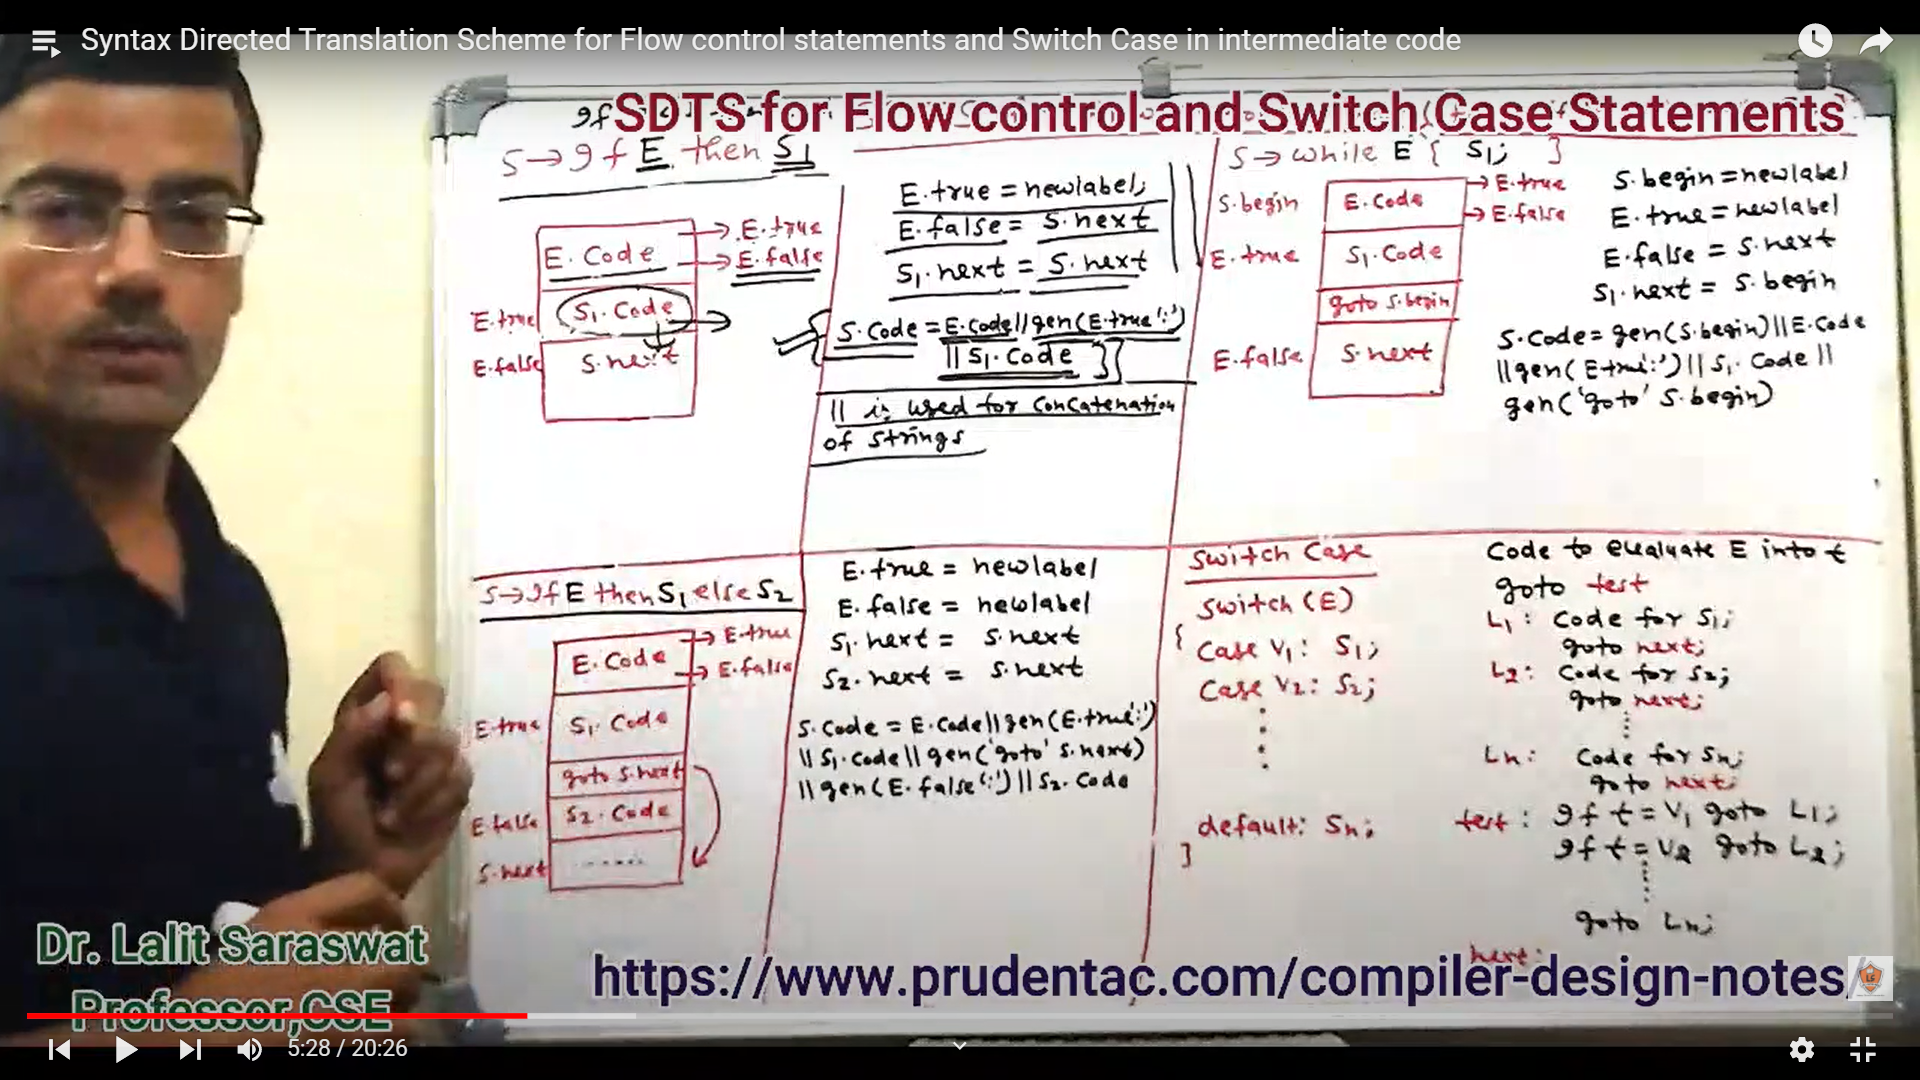 Syntax Directed Translation Scheme for Flow control statements and Switch Case in intermediate code
SDTS for Flow control and Switch Case Statements
S→If E then S1
E.Code
→E.true
→E.false
E.true
S1.Code
E.false
S.next
E.true = newlabel;
E.false = S.next
S1.next = S.next
{S.Code = E.Code||gen(E.true':')
||S1.Code }]
|| is used for Concatenation
of strings
S→while E { S1; }
S.begin
E.Code
→E.true
→E.false
E.true
S1.Code
goto S.begin
E.false
S.next
S.begin=newlabel
E.true=newlabel
E.false = S.next
S1.next = S.begin
S.Code=gen(S.begin)||E.Code
||gen(E.true':')||S1.Code||
gen('goto' S.begin)
S→If E then S1 else S2
E.Code
→E.true
→E.false
E.true
S1.Code
goto S.next
E.false
S2.Code
S.next
......
E.true = newlabel
E.false = newlabel
S1.next = S.next
S2.next = S.next
S.Code = E.Code||gen(E.true':')
||S1.Code||gen('goto' S.next)
||gen(E.false':')||S2.Code
Switch Case
Switch(E)
{ Case V1: S1;
Case V2: S2;
default: Sn;
}
Code to evaluate E into t
goto test
L1: Code for S1;
goto next;
L2: Code for S2;
goto next;
Ln: Code for Sn;
goto next;
test: If t=V1 goto L1;
If t=V2 goto L2;
goto Ln;
next:
Dr. Lalit Saraswat
Professor,CSE
https://www.prudentac.com/compiler-design-notes/
5:28 / 20:26